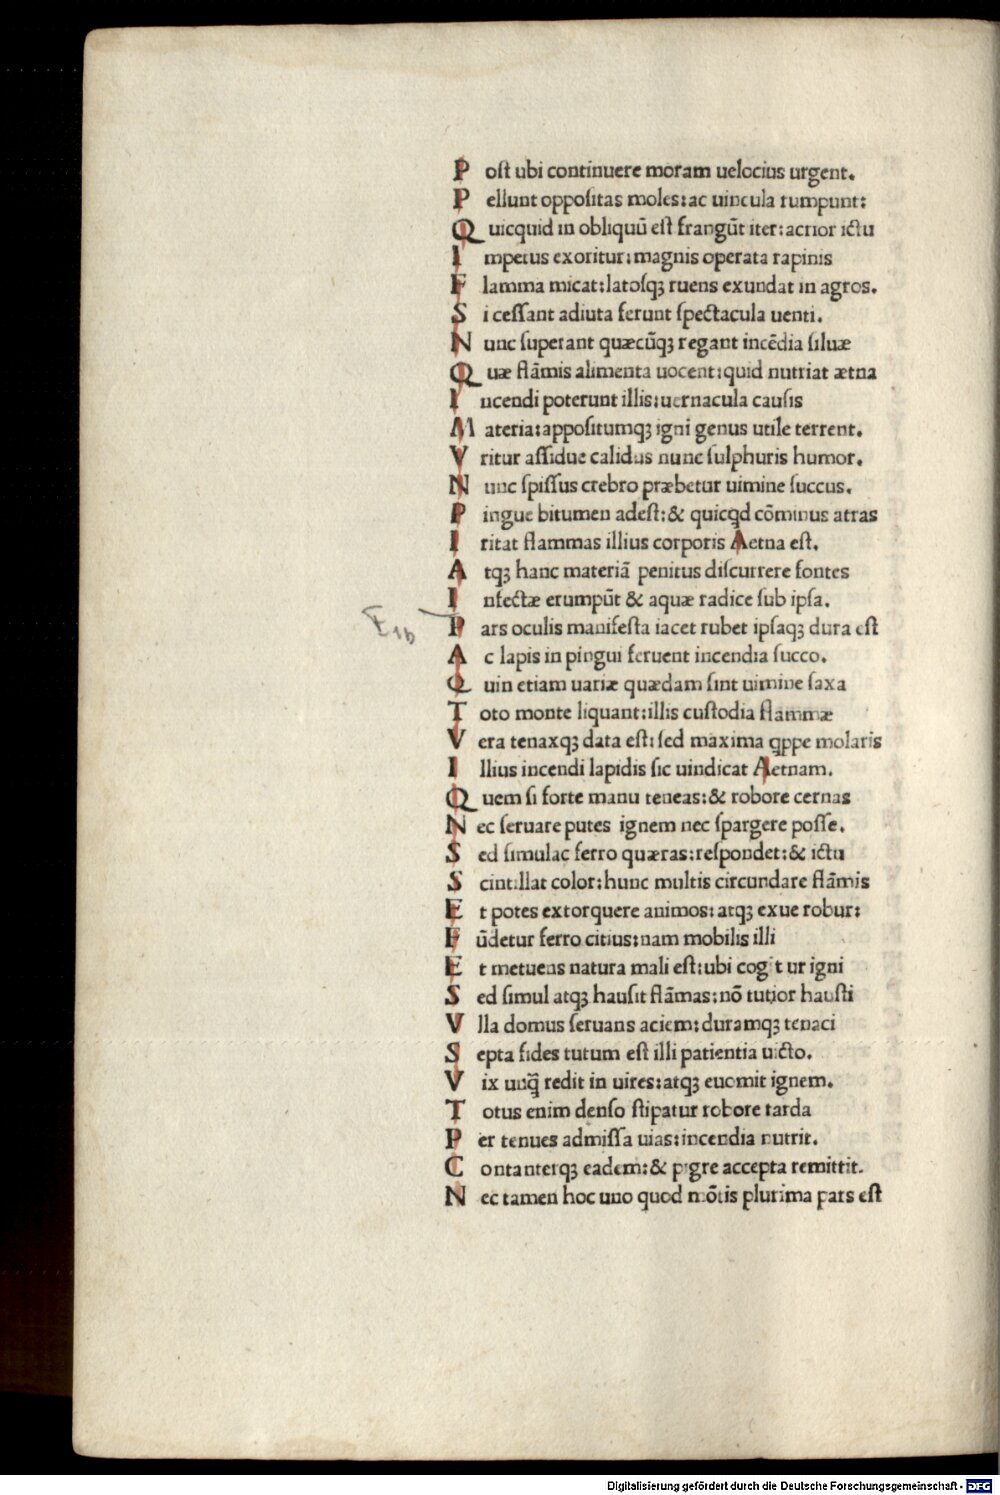 P oſt ubi continuere moram uelocius urgent.
P ellunt oppoſitas moles: ac uincula rumpunt:
Q uicquid in obliquū eſt frangūt iter: acrior ictu
I mpetus exoritur: magnis operata rapinis
F lamma micat: latoſqꝫ ruens exundat in agros.
S i ceſſant adiuta ferunt ſpectacula uenti.
N unc ſuperant quæcūqꝫ regant incēdia ſiluæ
Q uæ flāmis alimenta uocent: quid nutriat ætna
I ncendi poterunt illis: uernacula cauſis
M ateria: appoſitumqꝫ igni genus utile terrent.
V ritur aſſidue calidus nunc ſulphuris humor.
N unc ſpiſſus crebro præbetur uimine ſuccus.
P ingue bitumen adeſt: & quicqd cōminus atras
I ritat flammas illius corporis Aetna eſt.
A tqꝫ hanc materiā penitus diſcurrere fontes
I nfectæ erumpūt & aquæ radice ſub ipſa.
P ars oculis manifeſta iacet rubet ipſaqꝫ dura eſt
A c lapis in pingui feruent incendia ſucco.
Q uin etiam uariæ quædam ſint uimine ſaxa
T oto monte liquant: illis cuſtodia flammæ
V era tenaxqꝫ data eſt: ſed maxima qppe molaris
I llius incendi lapidis ſic uindicat Aetnam.
Q uem ſi forte manu teneas: & robore cernas
N ec ſeruare putes ignem nec ſpargere poſſe.
S ed ſimulac ferro quæras: reſpondet: & ictu
S cintillat color: hunc multis circundare flāmis
E t potes extorquere animos: atqꝫ exue robur:
F ūdetur ferro citius: nam mobilis illi
E t metuens natura mali eſt: ubi cogit ur igni
S ed ſimul atqꝫ hauſit flāmas: nō tutior hauſti
V lla domus ſeruans aciem: duramqꝫ tenaci
S epta fides tutum eſt illi patientia uicto.
V ix unq̄ redit in uires: atqꝫ euomit ignem.
T otus enim denſo ſtipatur robore tarda
P er tenues admiſſa uias: incendia nutrit.
C ontanterqꝫ eadem: & pigre accepta remittit.
N ec tamen hoc uno quod mōtis plurima pars eſt
Digitalisierung gefördert durch die Deutsche Forschungsgemeinschaft - DFG